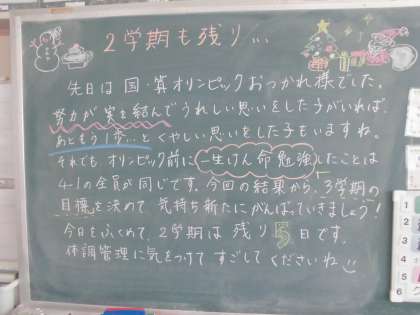 2学期も残り...
先日は国・算オリンピックおつかれ様でした。
努力が実を結んでうれしい思いをした子がいれば、
あともう1歩...とくやしい思いをした子もいますね。
それでもオリンピック前に一生けん命勉強したことは
4-1の全員が同じです。今回の結果から、3学期の
目標を決めて気持ち新たにがんばっていきましょう!
今日をふくめて、2学期は残り5日です。
体調管理に気をつけてすごしてくださいね